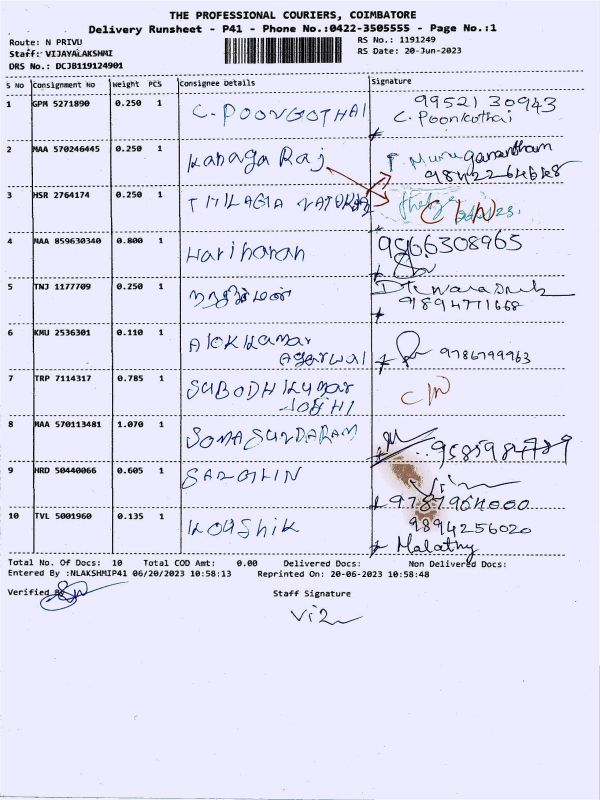 THE PROFESSIONAL COURIERS, COIMBATORE
Delivery Runsheet - P41 - Phone No.:0422-3505555 - Page No.:1
Route: N PRIVU
RS No.: 1191249
Staff: VIJAYALAKSHMI
RS Date: 20-Jun-2023
DRS No.: DCJB119124901
S No Consignment No Weight PCS Consignee Details Signature
1 GPM 5271890 0.250 1 C. POONGOTHAI 9952130943
C. Poonkothai
2 MAA 570246445 0.250 1 Kanaga Raj P. Muruganantham
9842264648
3 HSR 2764174 0.250 1 THILAGA C/N
4 MAA 859630340 0.800 1 Hariharan 9566308965
5 TNJ 1177709 0.250 1
9894771668
6 KMU 2536301 0.110 1 Alok kumar
Agarwal 9786799963
7 TRP 7114317 0.785 1 SUBODH Kumar
JOSHI C/N
8 MAA 570113481 1.070 1 SOMASUNDARAM
9585984789
9 HRD 50440066 0.605 1
9787964000
10 TVL 5001960 0.135 1 KOUShik 9894256020
Malathy
Total No. Of Docs: 10 Total COD Amt: 0.00 Delivered Docs: Non Delivered Docs:
Entered By :NLAKSHMIP41 06/20/2023 10:58:13 Reprinted On: 20-06-2023 10:58:48
Verified By
Staff Signature